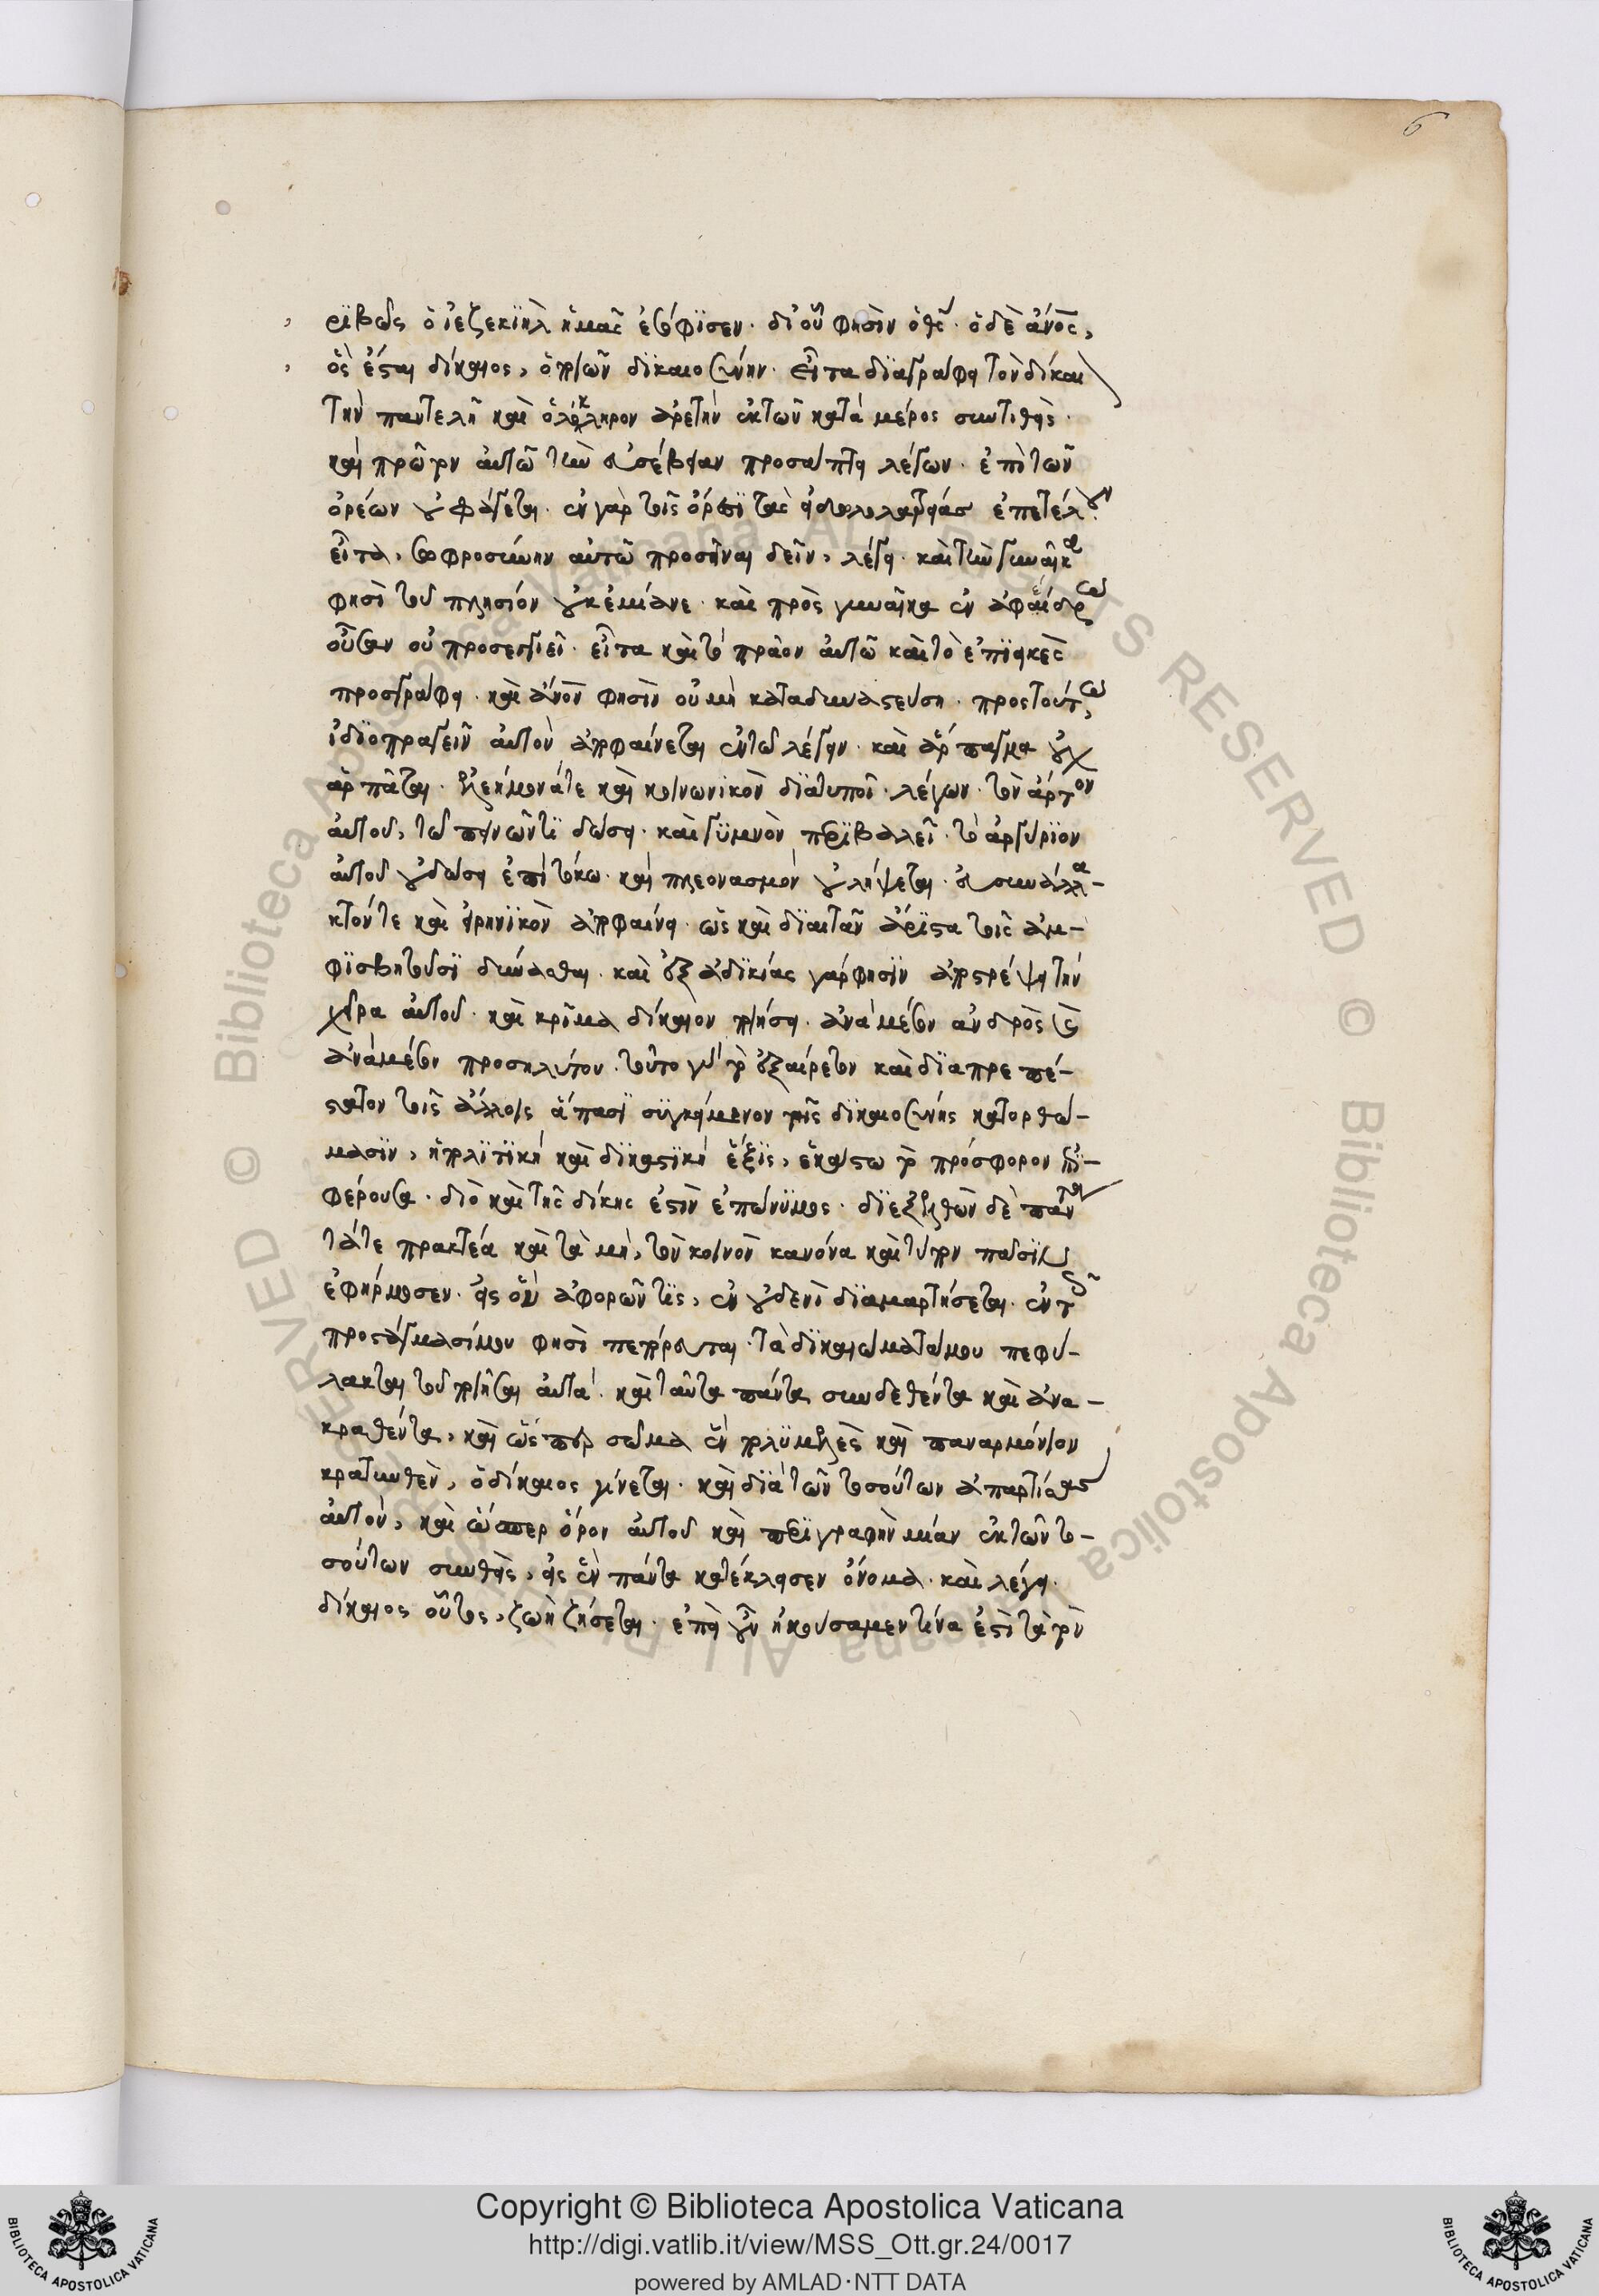 6
ριβῶς ὁ ἰεζεκιὴλ ἡμᾶς ἐσόφισεν. δι' οὗ φησὶν ὁ θς. ὁ δὲ ἀνος,
ὃς ἔσται δίκαιος, ὁ ποιῶν δικαιοσύνην. εἶτα διαγράφει τὸν δίκαι
τὴν παντελῆ καὶ ὁλόκληρον ἀρετὴν ἐκ τῶν κατὰ μέρος συντιθείς.
καὶ πρῶτον αὐτῶ τὴν εὐσέβειαν προσάπτει λέγων. ἐπὶ τῶν
ὀρέων οὐ φάγεται. ἐν γὰρ τοῖς ὄρεσι τὰς εἰδωλολατρείας ἐπετέλουν
εἶτα, σωφροσύνην αὐτῶ προσεῖναι δεῖν, λέγει. καὶ τὴν γυναῖκα
φησὶ τοῦ πλησίον οὐκ ἐμίανε. καὶ πρὸς γυναῖκα ἐν ἀφαίδρω
οὖσαν οὐ προσεγγιεῖ. εἶτα καὶ τὸ πρᾶον αὐτῶ καὶ τὸ ἐπιεικὲς
προσγράφει. καὶ ἀνον φησὶν οὐ μὴ καταδυναστεύση. πρὸς τούτω,
ἰδιοπραγεῖν αὐτὸν ἀποφαίνεται ἐν τῶ λέγειν. καὶ ἅρπαγμα οὐχ
ἁρπᾶται. ἐλεήμονά τε καὶ κοινωνικὸν διατυποῖ. λέγων. τὸν ἄρτον
αὐτοῦ, τῶ πεινῶντι δώσει. καὶ γυμνὸν περιβαλεῖ. τὸ ἀργύριον
αὐτοῦ οὐ δώσει ἐπὶ τόκω. καὶ πλεονασμὸν οὐ λήψεται. εὐσυνάλλα-
κτόν τε καὶ εἰρηνικὸν ἀποφαίνει. ὡς καὶ διαιτᾶν ἄριστα τοῖς ἀμ-
φισβητοῦσι δύνασθαι. καὶ ἐξ ἀδικίας γάρ φησιν ἀποστρέψει τὴν
χεῖρα αὐτοῦ. καὶ κρῖμα δίκαιον ποιήσει. ἀνὰ μέσον ἀνδρὸς καὶ
ἀνὰ μέσον προσηλύτου. τοῦτο γὰρ τὸ ἐξαίρετον καὶ διαπρεπέ-
στατον τοῖς ἄλλοις ἅπασι συγκείμενον τῆς δικαιοσύνης κατορθώ-
μασιν, ἡ πολιτικὴ καὶ δικαστικὴ ἕξις, ἑκάστω τὸ πρόσφορον ἐπι-
φέρουσα. διὸ καὶ τῆς δίκης ἐστὶν ἐπώνυμος. διεξελθὼν δὲ πάντα
τά τε πρακτέα καὶ τὰ μὴ, τὸν κοινὸν κανόνα καὶ τύπον πᾶσιν
ἐφήρμοσεν. εἰς ὃν ἀφορῶν τις, ἐν οὐδενὶ διαμαρτήσεται. ἐν τοῖς
προστάγμασί μου φησὶ πεπόρευται. τὰ δικαιώματά μου πεφύ-
λακται τοῦ ποιῆσαι αὐτά. καὶ ταῦτα πάντα συνδεθέντα καὶ ἀνα-
κραθέντα, καὶ ὥσπερ σῶμα ἓν πολυμελὲς καὶ παναρμόνιον
κρατυνθὲν, ὁ δίκαιος γίνεται. καὶ διὰ τῶν τοσούτων ἀπαρτίσας
αὐτὸν, καὶ ὥσπερ ὅρον αὐτοῦ καὶ περιγραφὴν μίαν ἐκ τῶν το-
σούτων συνθεὶς, εἰς ἓν πάντα κατέκλεισεν ὄνομα. καὶ λέγει.
δίκαιος οὗτος, ζωῆ ζήσεται. ἐπεὶ οὖν ἠκούσαμεν τίνα ἐστὶ τὰ τὸν
Copyright © Biblioteca Apostolica Vaticana
http://digi.vatlib.it/view/MSS_Ott.gr.24/0017
powered by AMLAD·NTT DATA